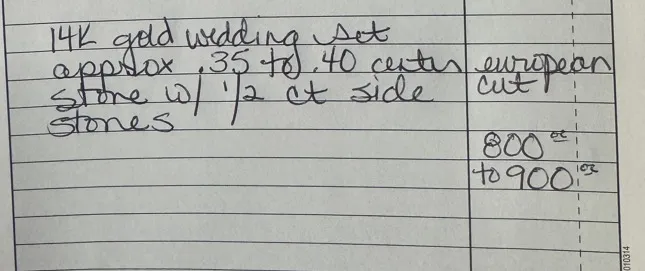 14K gold wedding set
approx .35 to .40 center european
stone w/ 1/2 ct side cut
stones
800 00
to 900 00
010314